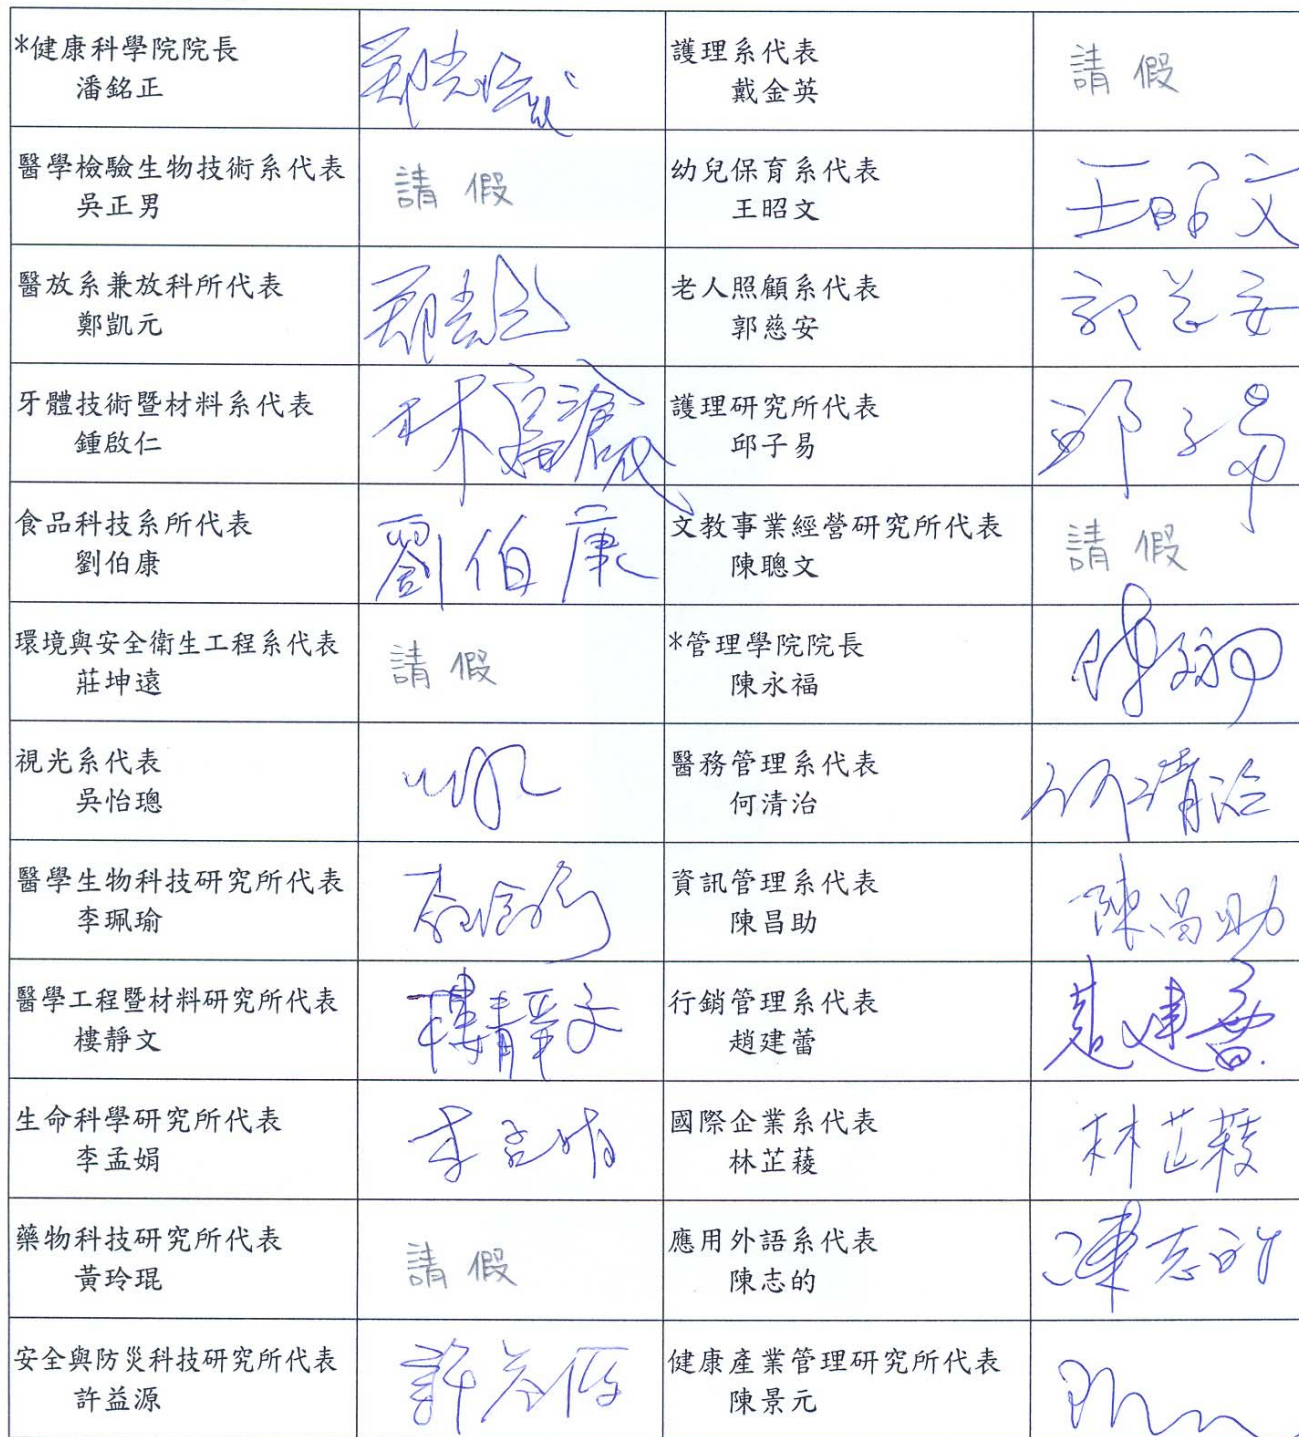 *健康科學院院長
潘銘正
護理系代表
戴金英
請假
醫學檢驗生物技術系代表
吳正男
請假
幼兒保育系代表
王昭文
王昭文
醫放系兼放科所代表
鄭凱元
老人照顧系代表
郭慈安
郭慈安
牙體技術暨材料系代表
鍾啟仁
護理研究所代表
邱子易
邱子易
食品科技系所代表
劉伯康
劉伯康
文教事業經營研究所代表
陳聰文
請假
環境與安全衛生工程系代表
莊坤遠
請假
*管理學院院長
陳永福
視光系代表
吳怡璁
醫務管理系代表
何清治
何清治
醫學生物科技研究所代表
李珮瑜
資訊管理系代表
陳昌助
陳昌助
醫學工程暨材料研究所代表
樓靜文
樓靜文
行銷管理系代表
趙建蕾
生命科學研究所代表
李孟娟
李孟娟
國際企業系代表
林芷薐
林芷薐
藥物科技研究所代表
黃玲琨
請假
應用外語系代表
陳志的
陳志的
安全與防災科技研究所代表
許益源
許益源
健康產業管理研究所代表
陳景元